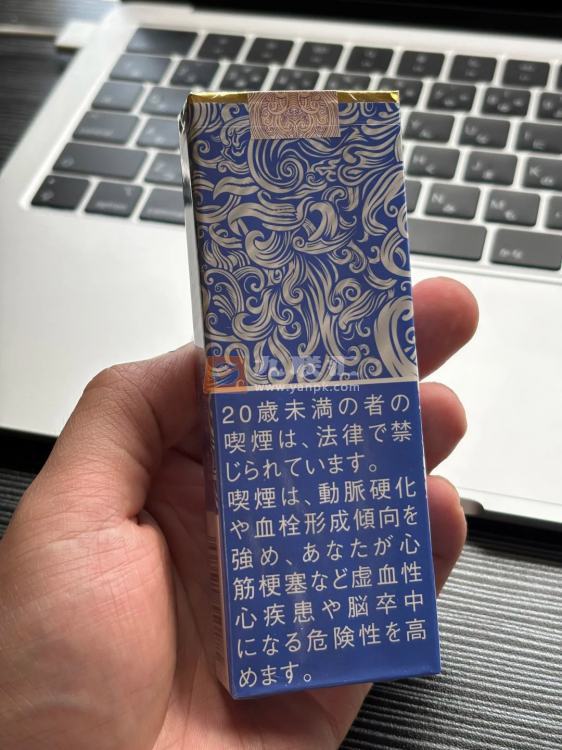 www.yanpk.com
20歳未満の者の
喫煙は、法律で禁
じられています。
喫煙は、動脈硬化
や血栓形成傾向を
強め、あなたが心
筋梗塞など虚血性
心疾患や脳卒中
になる危険性を高
めます。